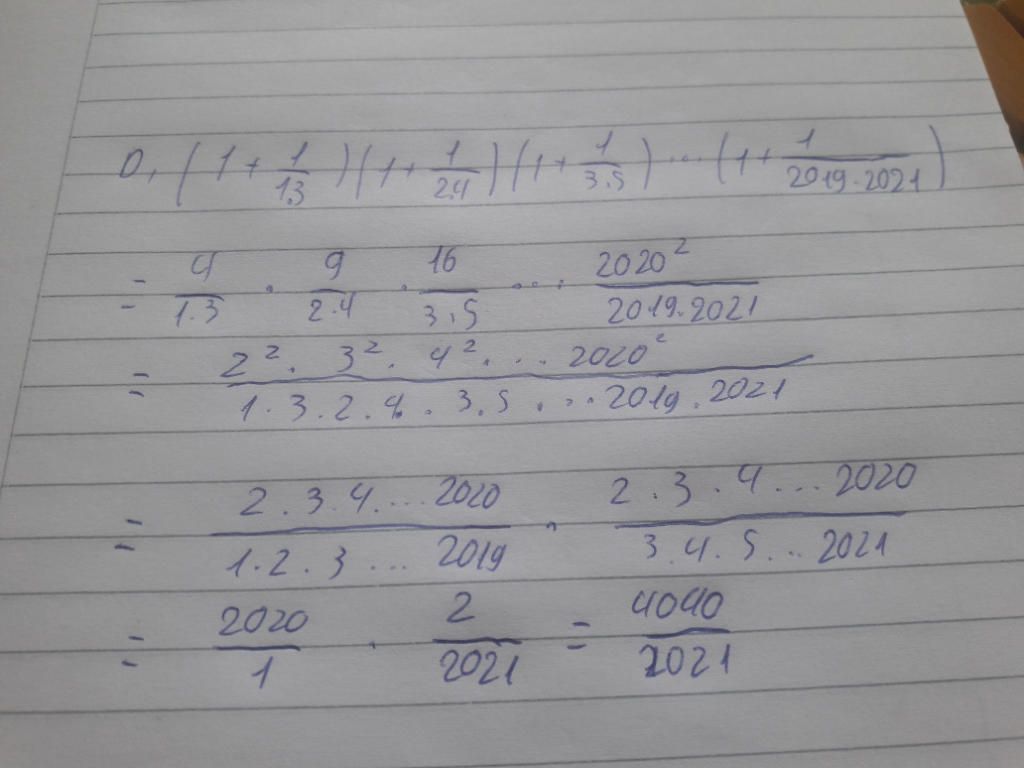 D, (1 + 1/1.3)(1 + 1/2.4)(1 + 1/3.5)...(1 + 1/2019.2021)
= 4/1.3 . 9/2.4 . 16/3.5 .... 2020²/2019.2021
= 2² . 3² . 4² . ... 2020²/1.3.2.4.3.5....2019.2021
= 2.3.4....2020/1.2.3...2019 . 2.3.4...2020/3.4.5...2021
= 2020/1 . 2/2021 = 4040/2021